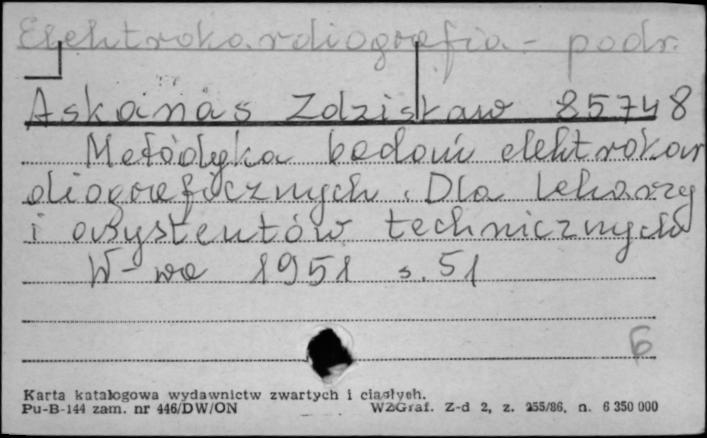 Elektrokardiografia - podr.
Askanas Zdzisław 85748
Metodyka badań elektrokar
diograficznych. Dla lekarzy
i asystentów technicznych
W-wa 1951 s. 51
6
Karta katalogowa wydawnictw zwartych i ciągłych.
Pu-B-144 zam. nr 446/DW/ON WZGraf. Z-d 2, z. 255/86, n. 6 350 000